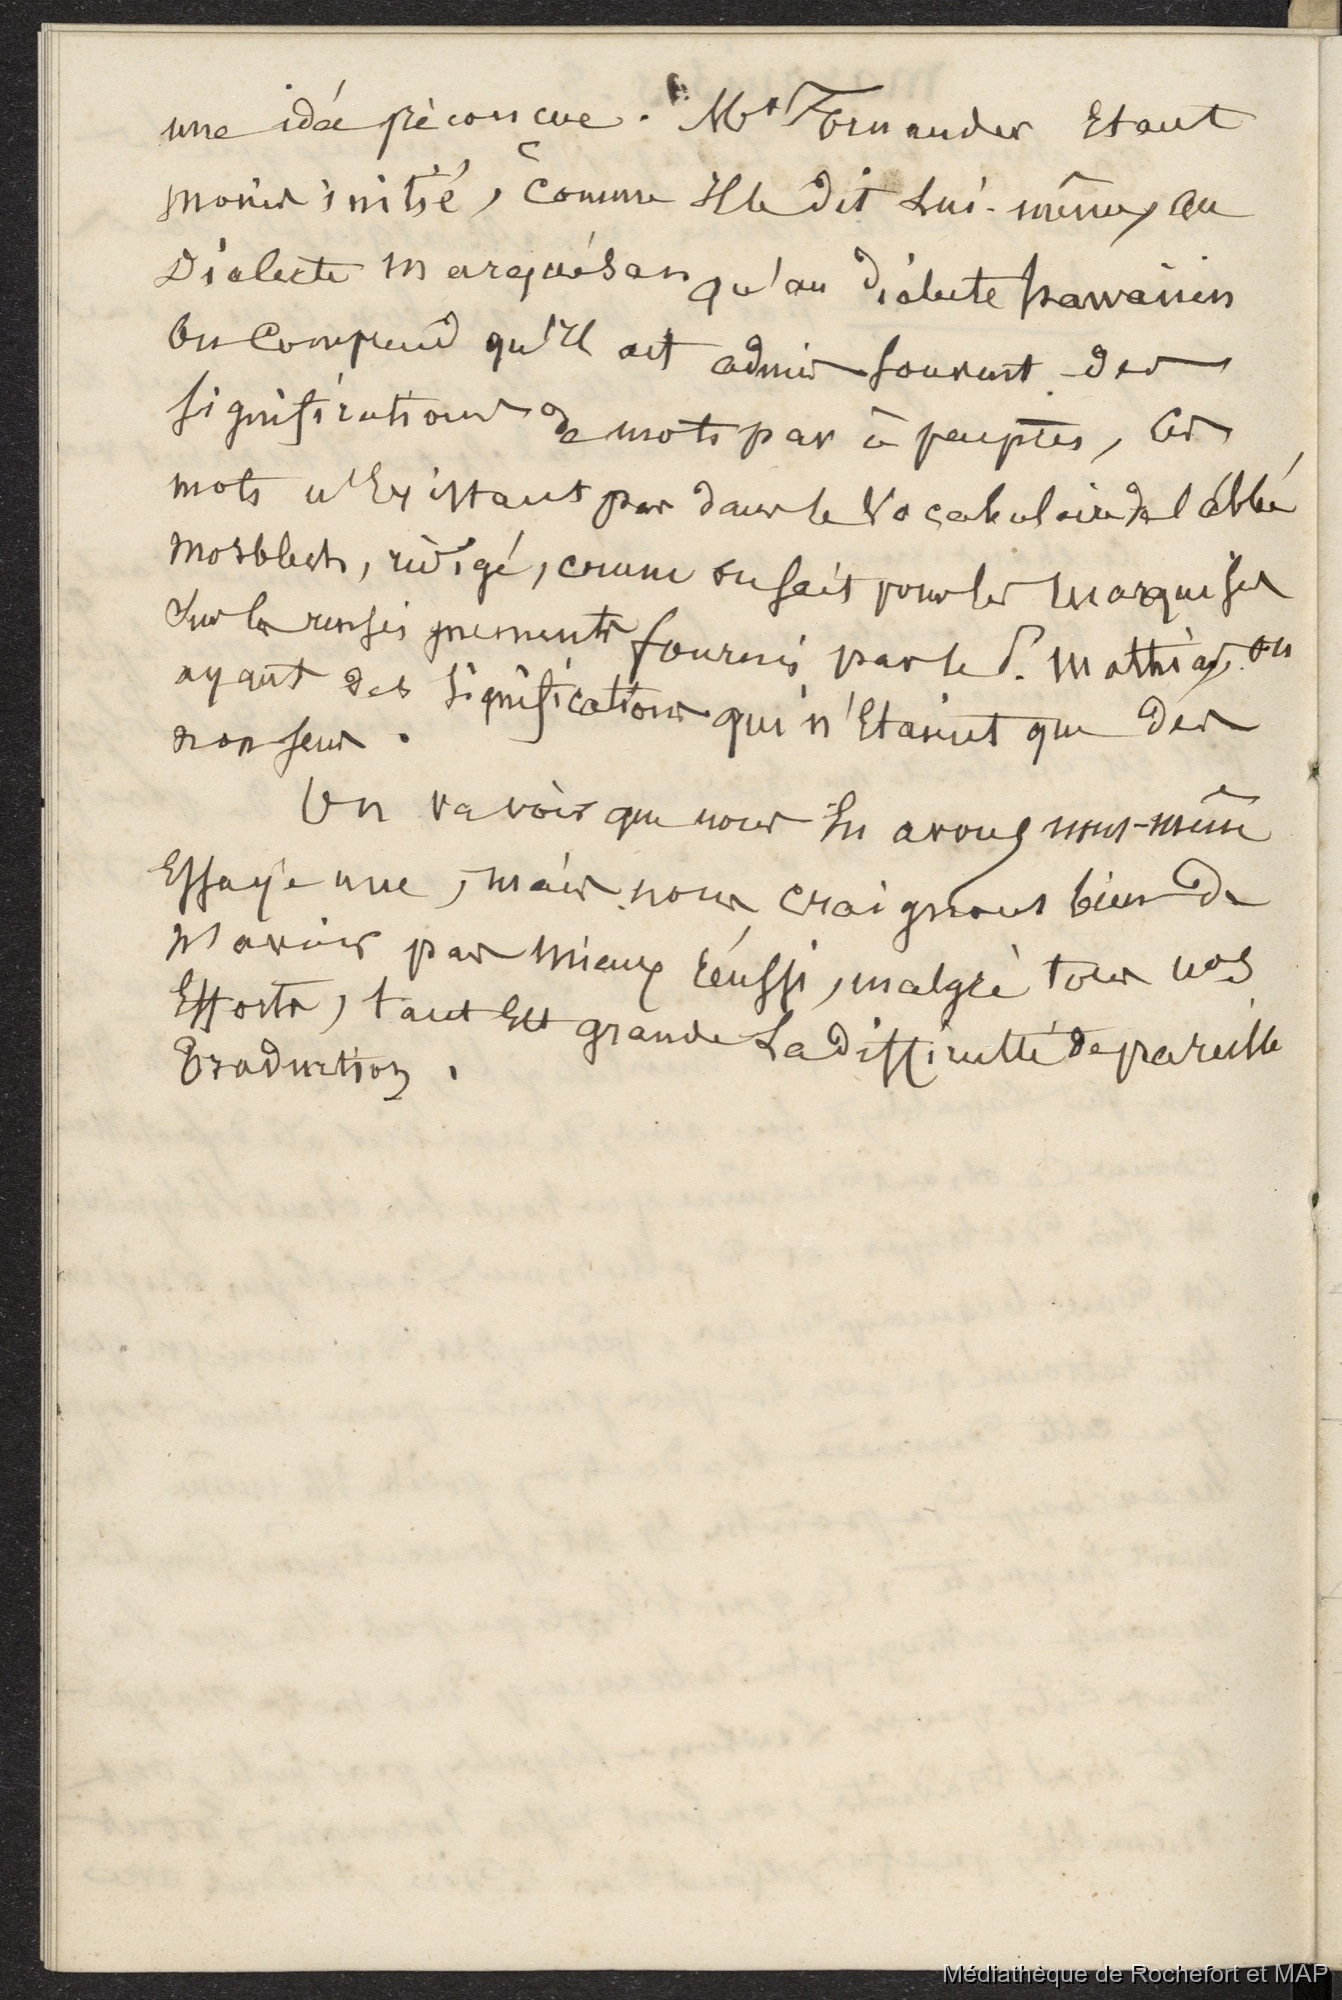 une idée préconçue. Mr Fornander Etant
moins initié, comme Il le dit lui-même, au
Dialecte Marquésan qu'au dialecte hawaiien
On Comprend qu'Il ait admis souvent des
significations de mots par à peuprès, Ces
mots n'Existant pas dans le Vocabulaire de l'abbé
Mosblech, rédigé, comme on sait pour les Marquises
Sur les renseignements fournis par le P. Mathias, ou
ayant des significations qui n'Etaient que des
non sens.
On va voir que nous En avons nous-même
Essayé une, mais nous craignons bien de
n'avoir pas mieux réussi, malgré tous nos
Efforts, tant Est grande La difficulté de pareille
Traduction.
Médiathèque de Rochefort et MAP